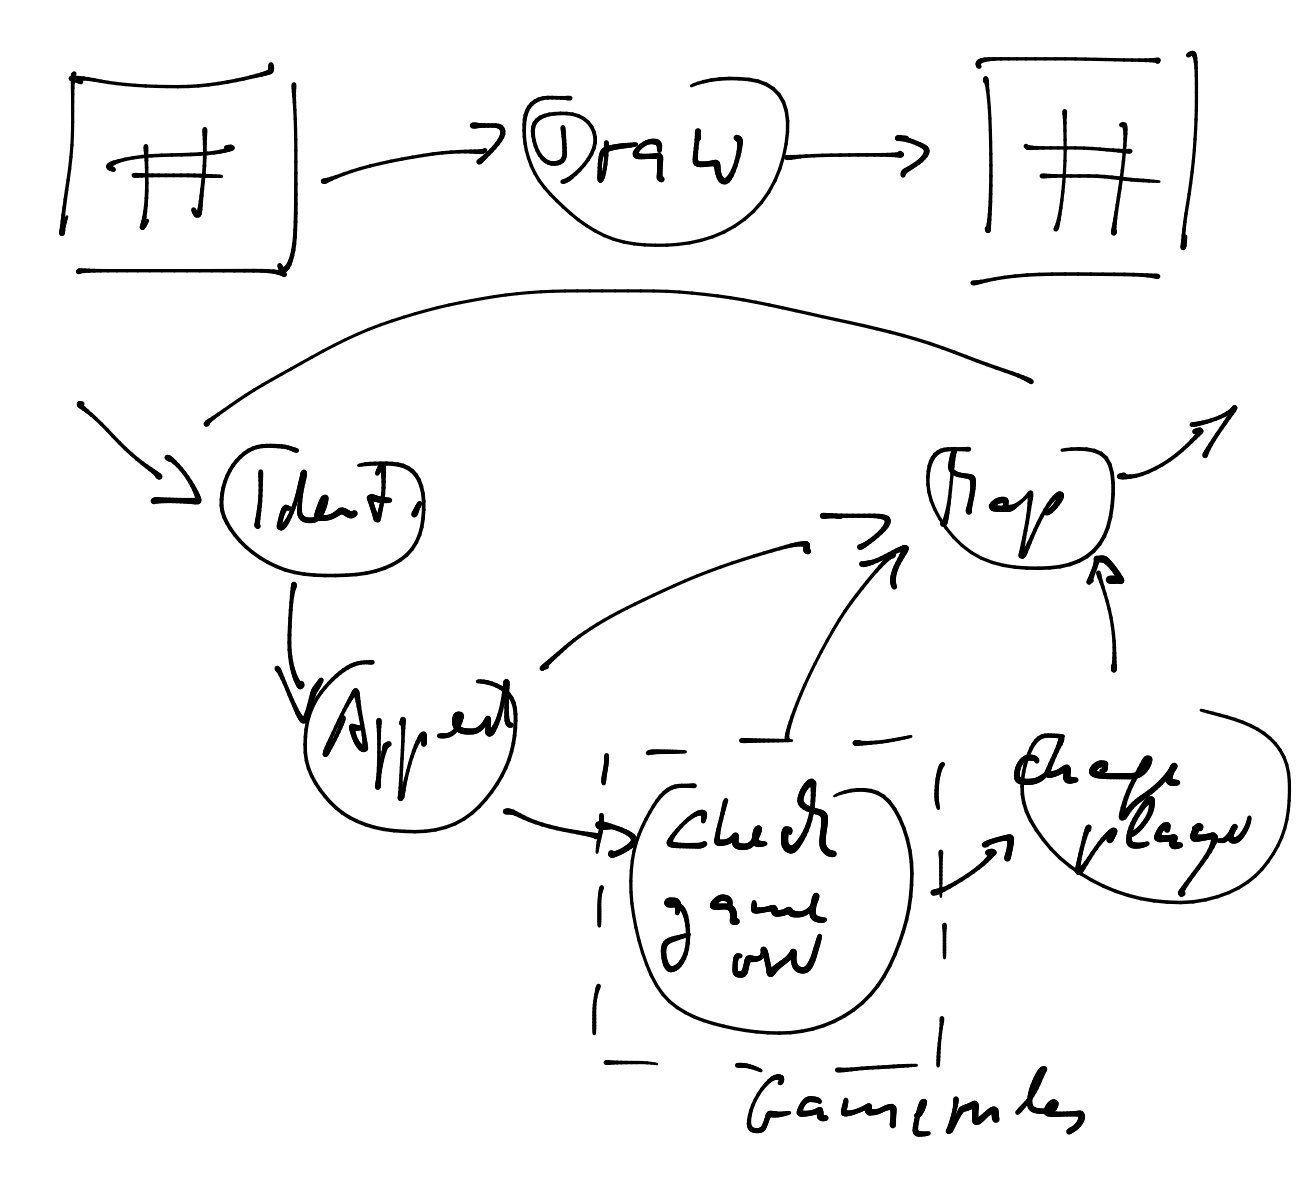 Draw
Ident.
Map
Append
Check
game
over
Change
player
Gamerules